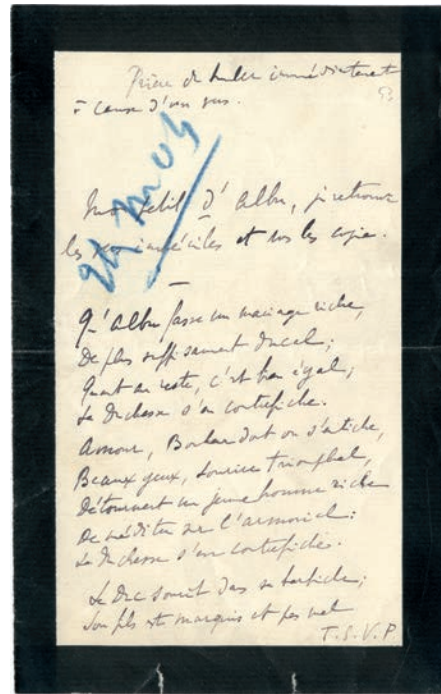 Prière de brûler immédiatement
à cause d'un vers.
Mon petit d'Albu, je retrouve
les vers imbéciles et vous les copie.
Qu'Albu fasse un mariage riche,
De plus suffisamment ducal;
Quant au reste, c'est bien égal;
La Duchesse s'en contrefiche.
Amour, dont on s'entiche,
Beaux yeux, sourire triomphal,
Détournent un jeune homme riche
De méditer sur l'armorial:
La Duchesse s'en contrefiche.
Le Duc sourit dans sa barbiche;
Son fils est marquis et pas mal
T.S.V.P.